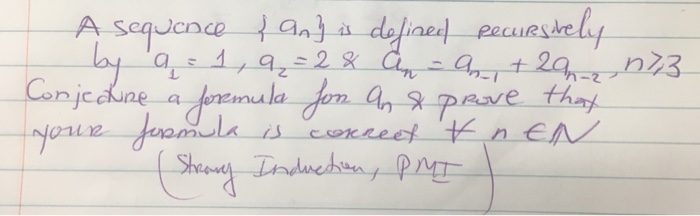 A sequence {aₙ} is defined recursively
by a₁ = 1, a₂ = 2 & aₙ = aₙ₋₁ + 2aₙ₋₂, n≥3
Conjecture a formula for aₙ & prove that
your formula is correct ∀ n ∈ N
(Strong Induction, PMI)